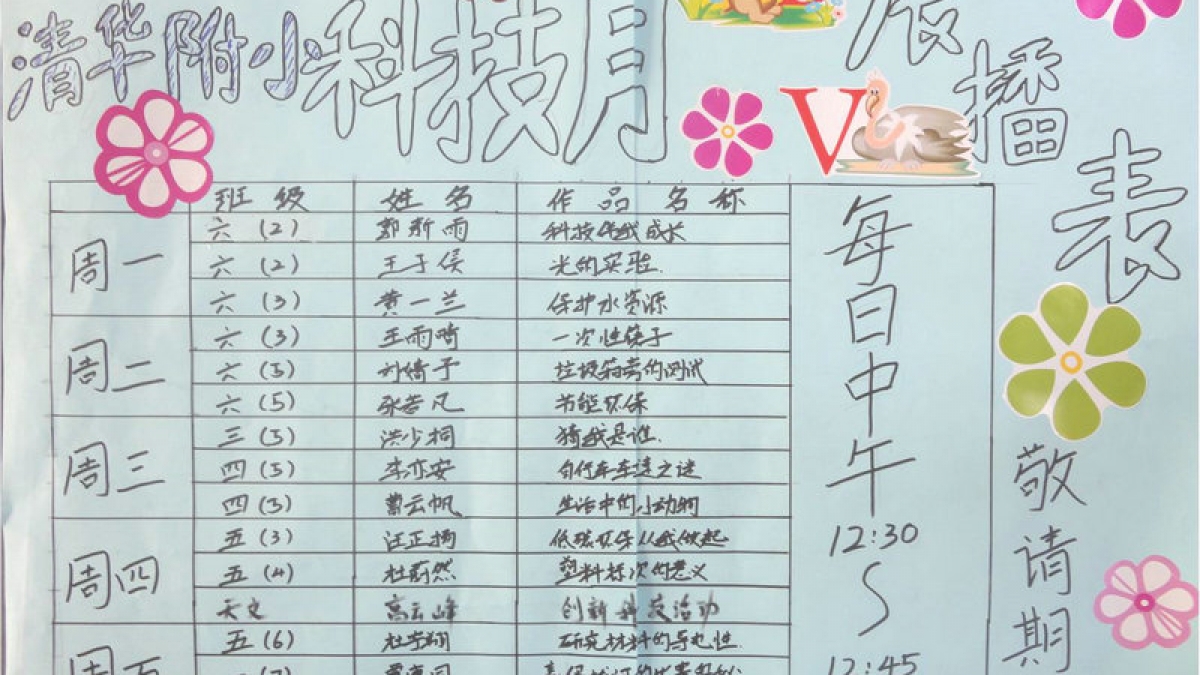 清华附小科技月展播表
班级 姓名 作品名称
周一
六(2) 郭新雨 科技伴我成长
六(2) 王子侯 光的实验.
六(3) 黄一兰 保护水资源
周二
六(3) 王雨晴 一次性筷子
六(5) 刘倚子 垃圾箱旁的测试
六(5) 若凡 节能环保
周三
三(5) 洪少桐 猜我是谁.
四(5) 李亦安 自行车车速之谜
四(3) 曹云帆 生活中的小动物
周四
五(3) 汪正扬 低碳环保从我做起
五(4) 杜蔚然 塑料标次的意义
天文 高云峰 创新科技活动
周五
五(6) 杜宇翔 研究材料的导电性
(7)
每日中午
12:30
12:45
敬请期